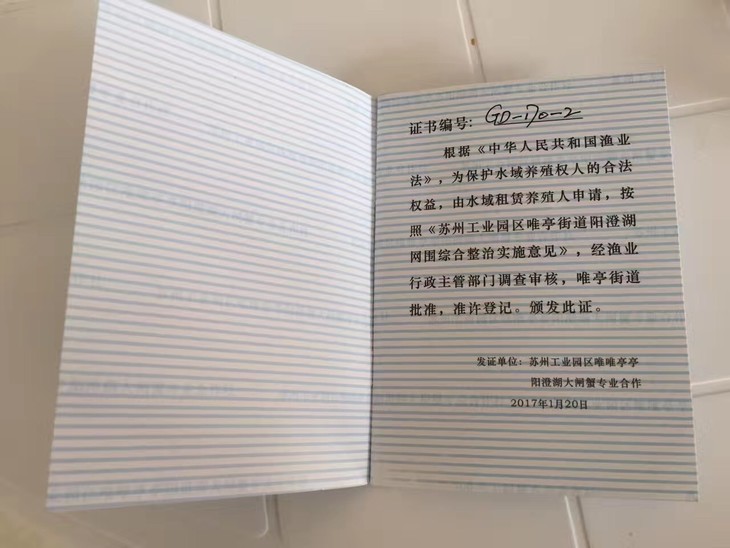 证书编号: GD-170-2
根据《中华人民共和国渔业
法》，为保护水域养殖权人的合法
权益，由水域租赁养殖人申请，按
照《苏州工业园区唯亭街道阳澄湖
网围综合整治实施意见》，经渔业
行政主管部门调查审核，唯亭街道
批准，准许登记。颁发此证。
发证单位：苏州工业园区唯唯亭亭
阳澄湖大闸蟹专业合作
2017年1月20日